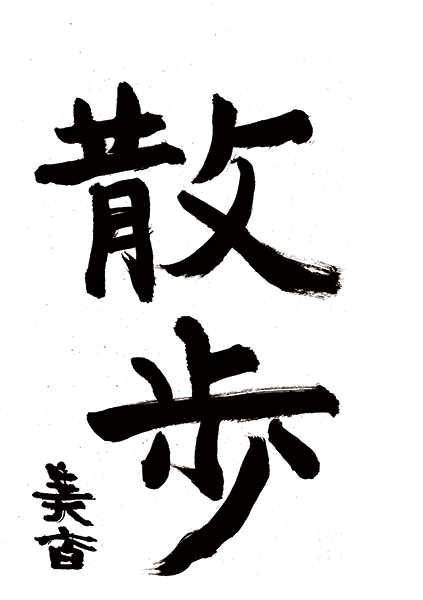 散歩
美杏